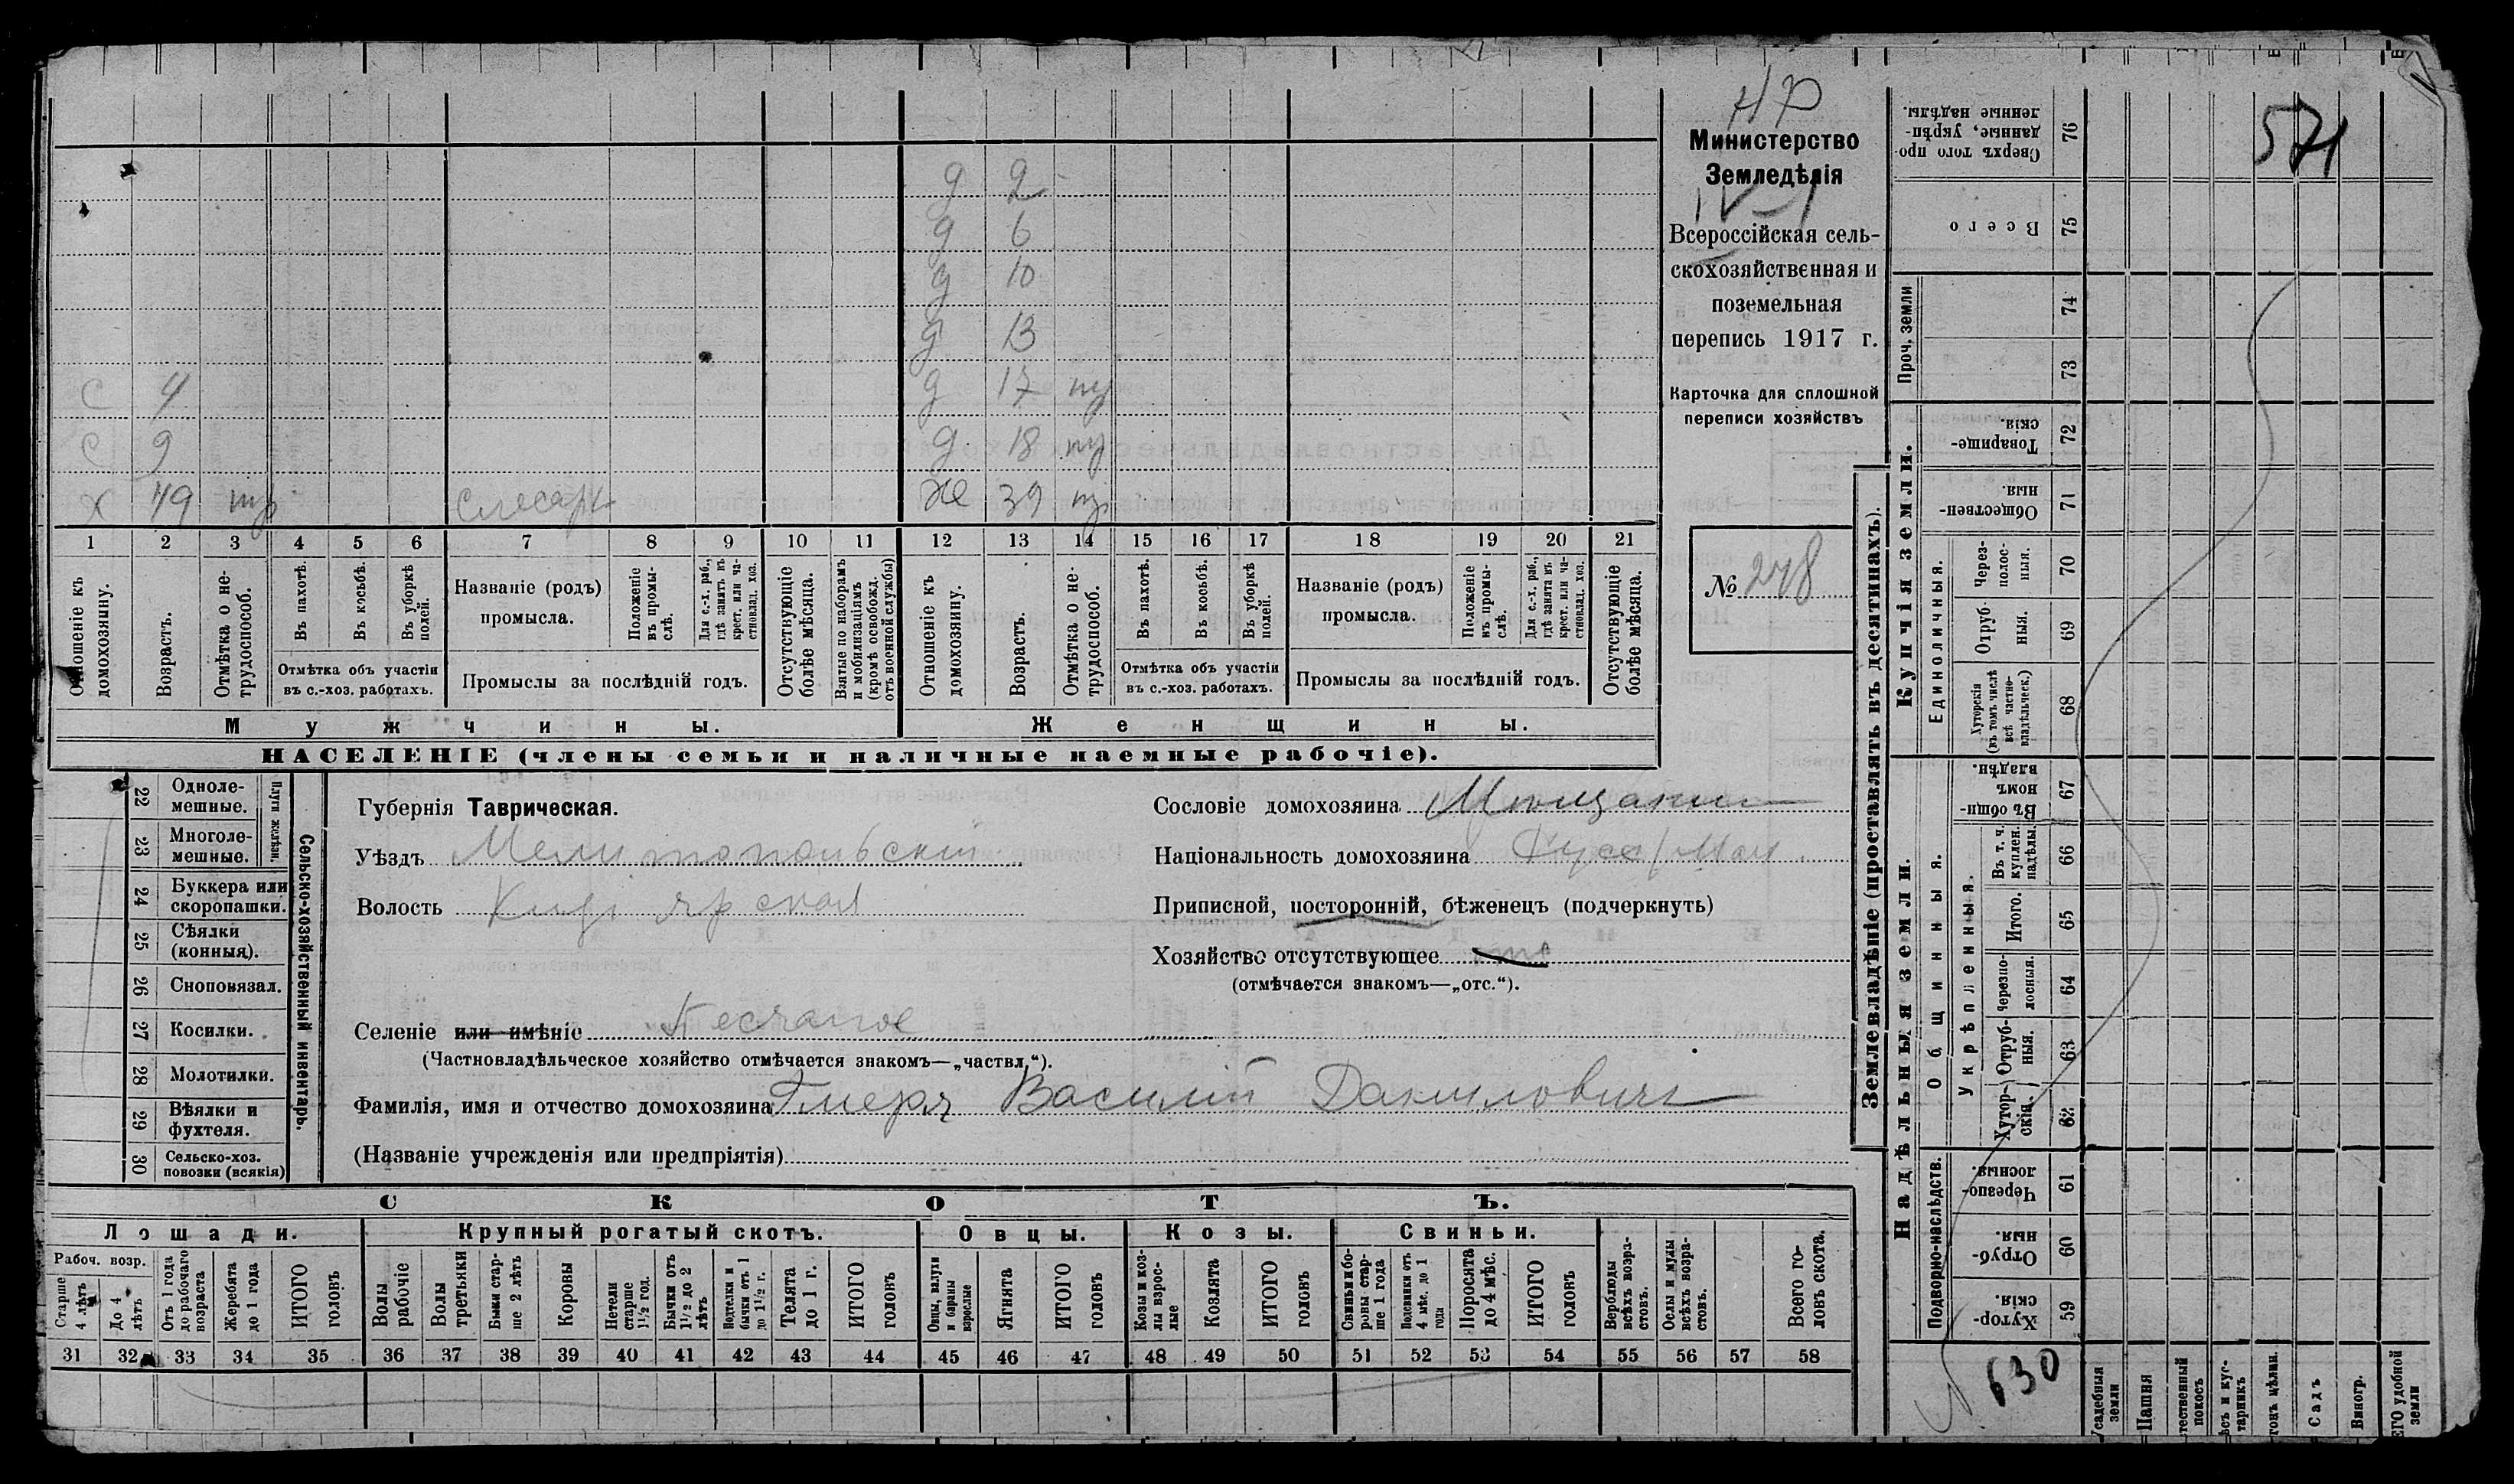 д 2
д 6
д 10
д 13
С 4 д 17 тр
С 9 д 18 тр
Х 49 тр слесарь Же 39 тр
1 2 3 4 5 6 7 8 9 10 11 12 13 14 15 16 17 18 19 20 21
Отношеніе къ домохозяину.
Возрастъ.
Отмѣтка о не-трудоспособ.
Въ пахотѣ.
Въ косьбѣ.
Въ уборкѣ полей.
Отмѣтка объ участіи
въ с.-хоз. работахъ.
Названіе (родъ)
промысла.
Положеніе въ промы-слѣ.
Для с.-х. раб., гдѣ занятъ въ крест. или ча-стновлад. хоз.
Промыслы за послѣдній годъ.
Отсутствующіе болѣе мѣсяца.
Взятые по наборамъ и мобилизаціямъ (кромѣ освобожд. отъ военной службы)
Отношеніе къ домохозяину.
Возрастъ.
Отмѣтка о не-трудоспособ.
Въ пахотѣ.
Въ косьбѣ.
Въ уборкѣ полей.
Отмѣтка объ участіи
въ с.-хоз. работахъ.
Названіе (родъ)
промысла.
Положеніе въ промы-слѣ.
Для с.-х. раб., гдѣ занятъ въ крест. или ча-стновлад. хоз.
Промыслы за послѣдній годъ.
Отсутствующіе болѣе мѣсяца.
Мужчины. Женщины.
НАСЕЛЕНІЕ (члены семьи и наличные наемные рабочіе).
Министерство
Земледѣлія
IV-1
Всероссійская сель-
скохозяйственная и
поземельная
перепись 1917 г.
Карточка для сплошной
переписи хозяйствъ
№ 248
22 Одноле-
мешные.
23 Многоле-
мешные.
Плуги желѣзн.
24 Буккера или
скоропашки.
25 Сѣялки
(конныя).
26 Сноповязал.
27 Косилки.
28 Молотилки.
29 Вѣялки и
фухтеля.
30 Сельско-хоз.
повозки (всякія)
Сельско-хозяйственный инвентарь.
Губернія Таврическая.
Уѣздъ Мелитопольскій
Волость
Селеніе или имѣніе Песчаное
(Частновладѣльческое хозяйство отмѣчается знакомъ—„частвл.“).
Фамилія, имя и отчество домохозяина Василій Даниловичъ
(Названіе учрежденія или предпріятія)
Сословіе домохозяина Мѣщанинъ
Національность домохозяина
Приписной, посторонній, бѣженецъ (подчеркнуть)
Хозяйство отсутствующее
(отмѣчается знакомъ—„отс.“).
СКОТЪ.
Лошади. Крупный рогатый скотъ. Овцы. Козы. Свиньи.
Рабоч. возр.
Старше 4 лѣтъ
До 4 лѣтъ
Отъ 1 года до рабочаго возраста
Жеребята до 1 года
ИТОГО головъ
Волы рабочіе
Волы третьяки
Быки стар-ше 2 лѣтъ
Коровы
Нетели старше 1½ год.
Бычки отъ 1½ до 2 лѣтъ
Подтелки и бычки отъ 1 до 1½ г.
Телята до 1 г.
ИТОГО головъ
Овцы, валухи и бараны взрослые
Ягнята
ИТОГО головъ
Козы и коз-лы взрос-лые
Козлята
ИТОГО головъ
Свиньи и бо-ровы стар-ше 1 года
Подсвинки отъ 4 мѣс. до 1 года
Поросята до 4 мѣс.
ИТОГО головъ
Верблюды всѣхъ возра-стовъ.
Ослы и мулы всѣхъ возра-стовъ.
Всего го-ловъ скота.
31 32 33 34 35 36 37 38 39 40 41 42 43 44 45 46 47 48 49 50 51 52 53 54 55 56 57 58
Землевладѣніе (проставлять въ десятинахъ).
Купчія земли.
Надѣльныя земли.
Сверхъ того про-данные, укрѣп-ленные надѣлы. 76
Всего 75
Проч. земли 74 73
Товарище-скія. 72
Обществен-ныя. 71
Единоличныя.
Через-полос-ныя. 70
Отруб-ныя. 69
Хуторскія (въ томъ числѣ всѣ частно-владѣльческ.) 68
Общинныя.
Въ общин-номъ владѣн. 67
Укрѣпленныя.
Въ т. ч. куплен. надѣлы. 66
Итого. 65
Черезпо-лосныя. 64
Отруб-ныя. 63
Хутор-скія. 62
Подворно-наслѣдств.
Черезпо-лосныя. 61
Отруб-ныя. 60
Хутор-скія. 59
571
N 630
Усадебныя земли
Пашня
покосъ
Садъ
Виногр.
удобной земли